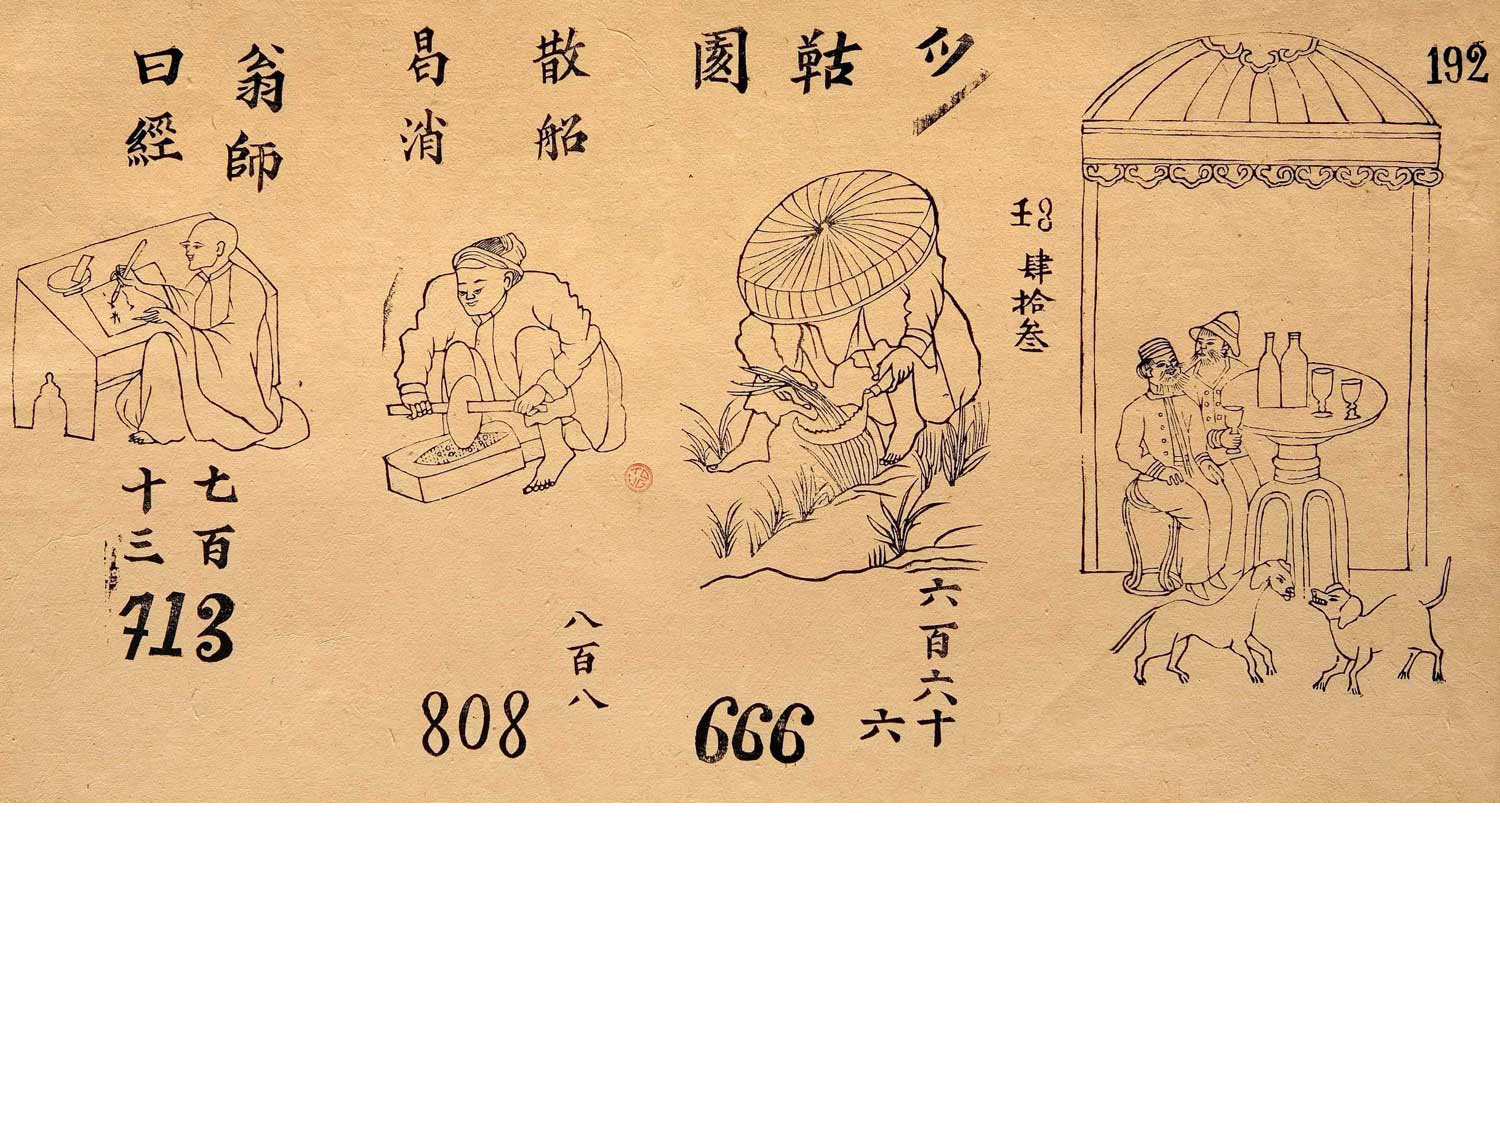 192
壬
肆拾叁
𱐬
鞊
園
六百六十
六
666
散船
昌消
八百八
808
翁師
曰經
七百
十三
713